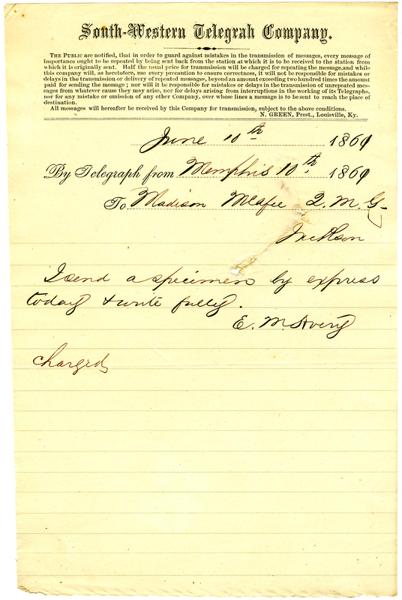 South-Western Telegrah Company.
THE PUBLIC are notified, that in order to guard against mistakes in the transmission of messages, every message of
importance ought to be repeated by being sent back from the station at which it is to be received to the station from
which it is originally sent. Half the usual price for transmission will be charged for repeating the message, and while
this company will, as heretofore, use every precaution to ensure correctness, it will not be responsible for mistakes or
delays in the transmission or delivery of repeated messages, beyond an amount exceeding two hundred times the amount
paid for sending the message; nor will it be responsible for mistakes or delays in the transmission of unrepeated messages
from whatever cause they may arise, nor for delays arising from interruptions in the working of its Telegraphs,
nor for any mistake or omission of any other Company, over whose lines a message is to be sent to reach the place of
destination.
All messages will hereafter be received by this Company for transmission, subject to the above conditions.
N. GREEN, Prest., Louisville, Ky.
June 10th 1861
By Telegraph from Memphis 10th 1861
To Madison McAfee Q. M. G
Jackson
I send a specimen by express
today & write fully.
E. M. Avery
charged